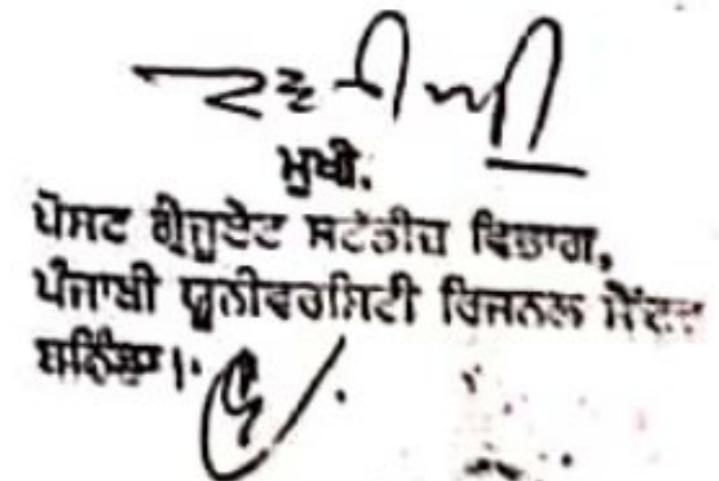 ਮੁਖੀ,
ਪੋਸਟ ਗ੍ਰੈਜੂਏਟ ਸਟੱਡੀਜ਼ ਵਿਭਾਗ,
ਪੰਜਾਬੀ ਯੂਨੀਵਰਸਿਟੀ ਰਿਜਨਲ ਸੈਂਟਰ
ਬਠਿੰਡਾ।